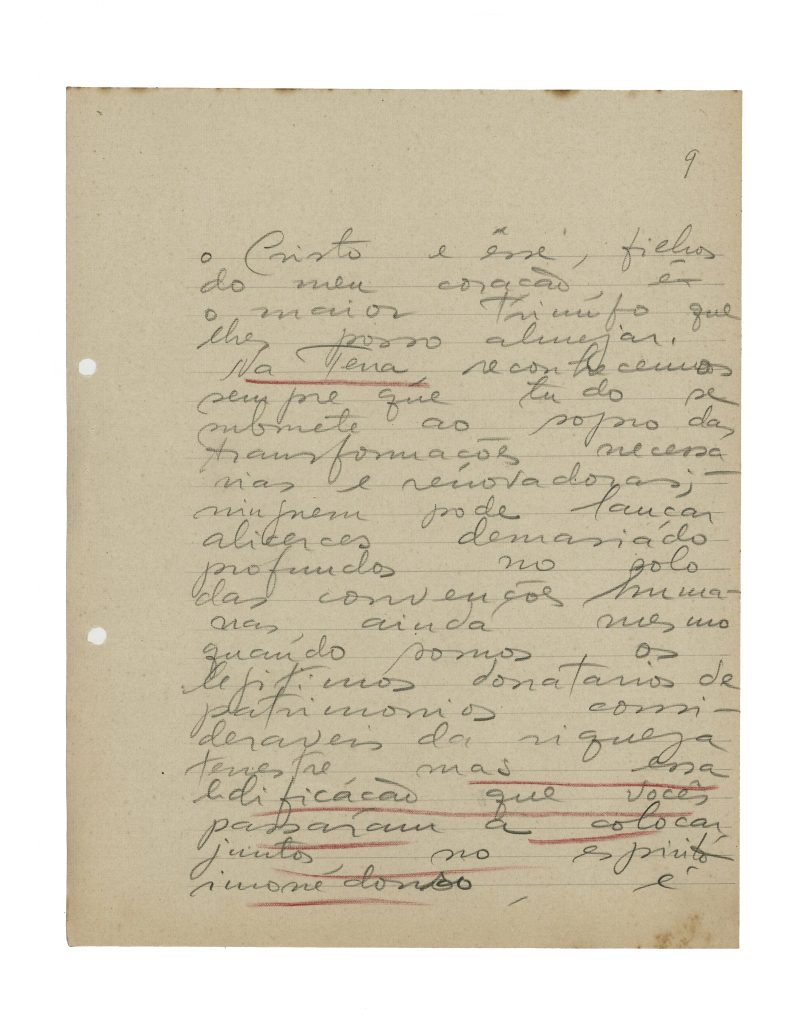 9
o Cristo e êsse, filhos
do meu coração, é
o maior triúnfo que
lhes posso almejar.
Na Terra, reconhecemos
sempre que tudo se
submete ao sopro das
transformações necessa
rias e renovadoras;—
ninguem pode lançar
alicerces demasiádo
profundos no solo
das convenções huma-
nas, ainda mesmo
quando somos os
legitimos donatarios de
patrimonios consi-
deraveis da riqueza
terrestre mas essa
edificácão que vocês
passaram a colocar,
juntos, no espirito
, é